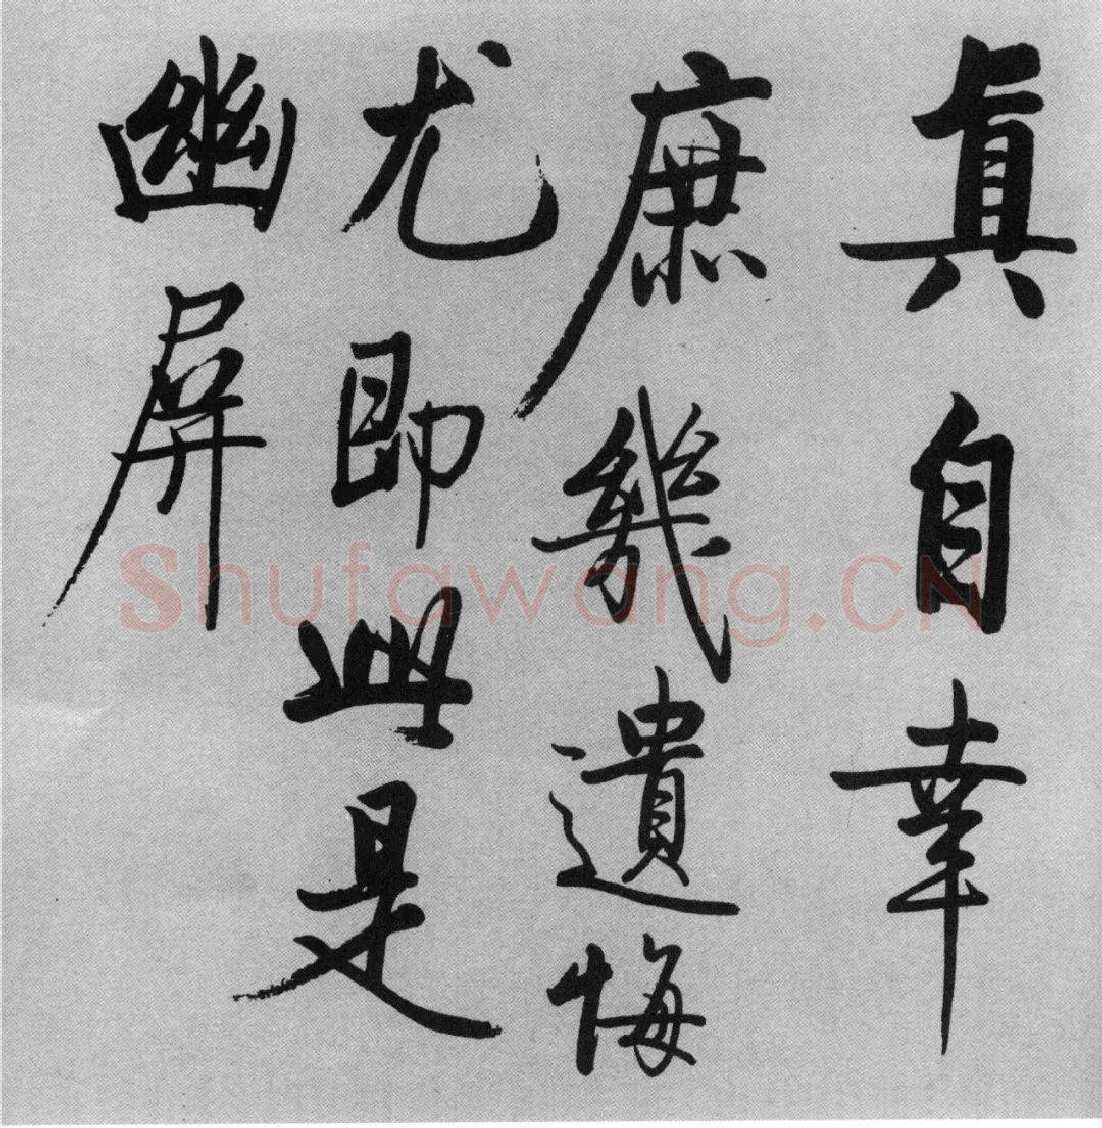 真自幸
庶幾遺悔
尤即此是
幽屏
Shufawang.CN